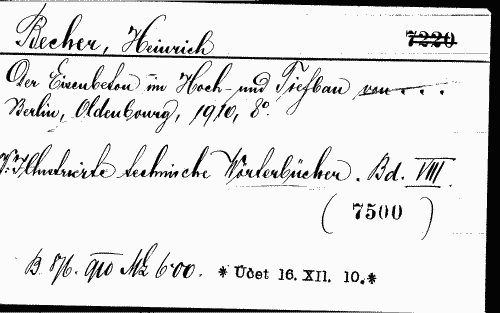 Becher, Heinrich 7220
Der Eisenbeton im Hoch- und Tiefbau von . . .
Berlin, Oldenbourg, 1910, 8°.
V: Illustrierte technische Wörterbücher. Bd. VIII.
( 7500 )
B. 876. 910 Mk 6·00. * Udet 16. XII. 10.*